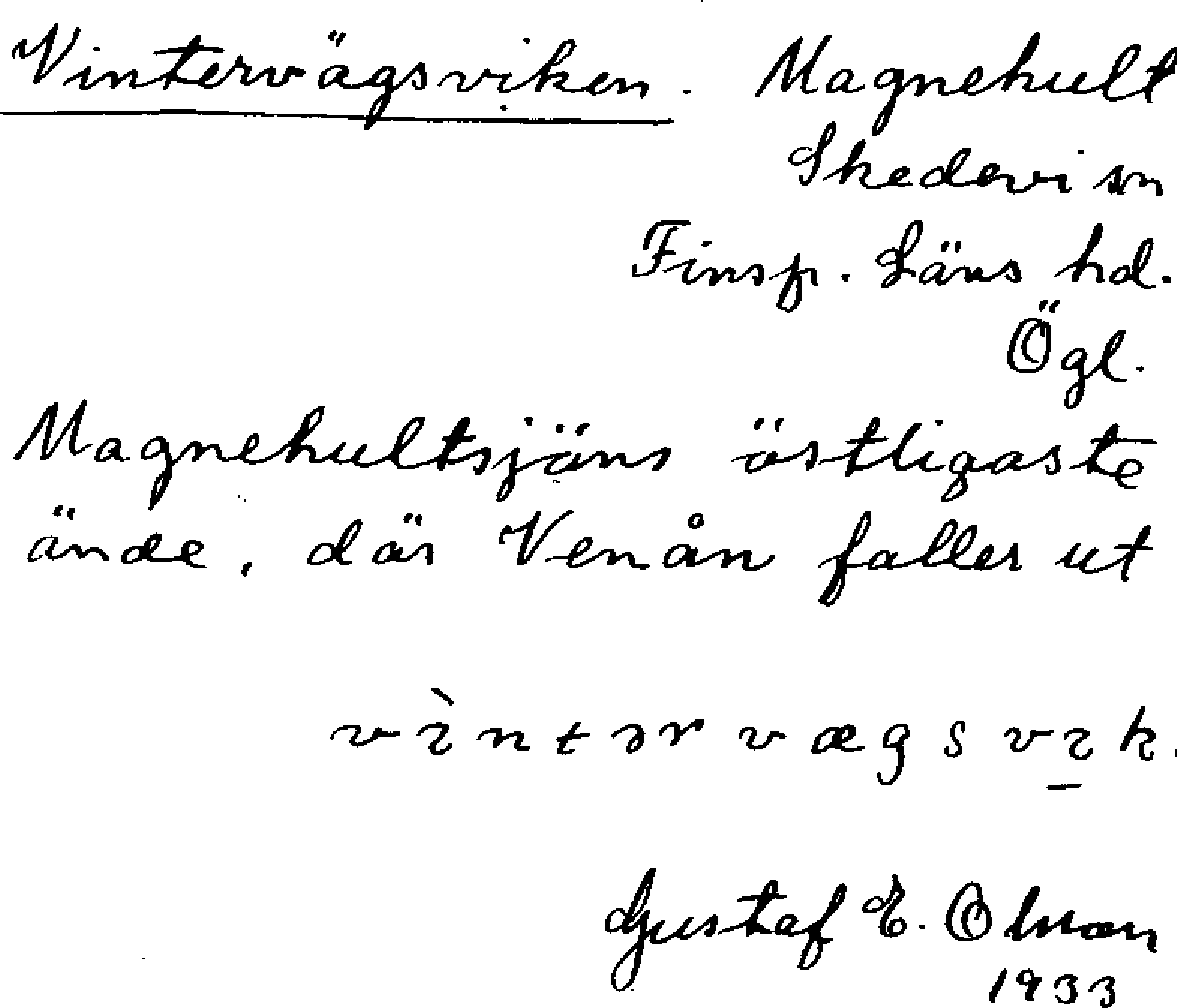 Vintervägsviken. Magnehult
Skedevi sn
Finsp. Läns hd.
Ögl.
Magnehultsjöns östligaste
ände, där Venån faller ut
vı̀ntər vægs vı̱k.
Gustaf E. Olson
1933